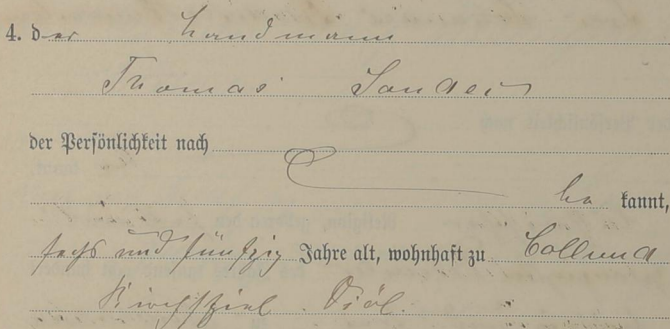 4. der Landmann
Thomas Sander
der Persönlichkeit nach
be kannt,
sechs und fünfzig Jahre alt, wohnhaft zu Collund
Kirchspiel Viöl.